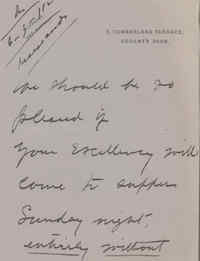 5, CUMBERLAND TERRACE,
REGENTS PARK.
We should be so
pleased if
Your Excellency will
come to supper
Sunday night,
entirely without